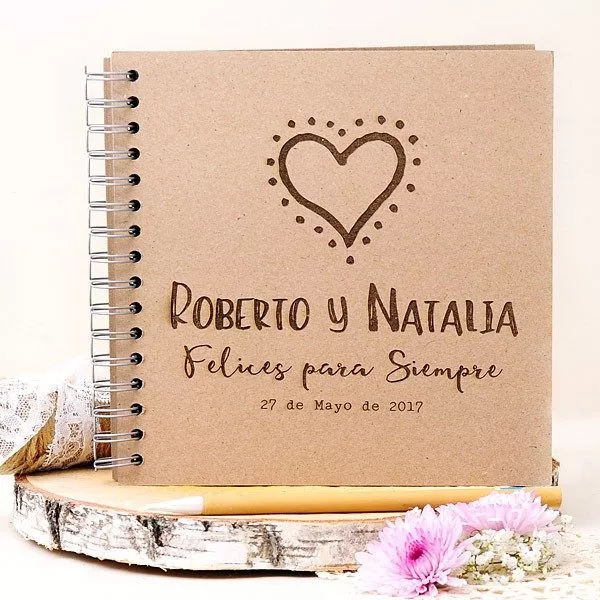 Roberto y Natalia
Felices para Siempre
27 de Mayo de 2017